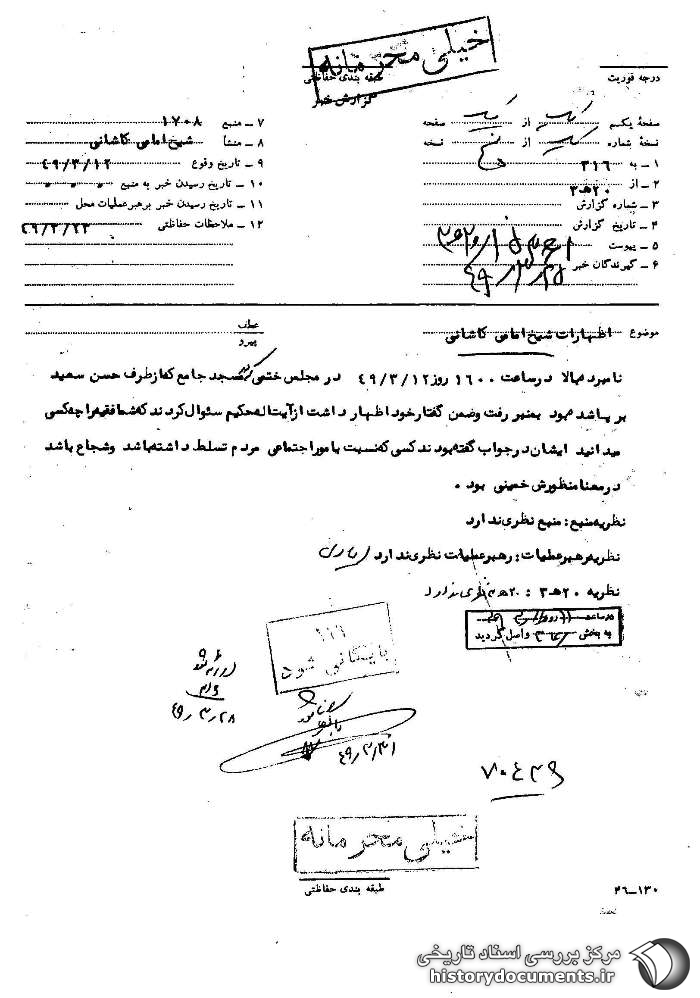 خیلی محرمانه
درجه فوریت
طبقه بندی حفاظتی
گزارش خبر
صفحهٔ یکم یک از یک صفحه
نسخهٔ شماره یک از پنج نسخه
۱ ـ به ۳۱۶
۲ ـ از ۲۰ﻫ۳
۳ ـ شماره گزارش
۴ ـ تاریخ گزارش
۵ ـ پیوست
۶ ـ گیرندگان خبر
۷ ـ منبع ۱۷۰۸
۸ ـ منشأ شیخ امامی کاشانی
۹ ـ تاریخ وقوع ۴۹/۳/۱۲
۱۰ ـ تاریخ رسیدن خبر به منبع
۱۱ ـ تاریخ رسیدن خبر برهبر عملیات محل
۱۲ ـ ملاحظات حفاظتی ۴۹/۳/۲۳
موضوع اظهارات شیخ امامی کاشانی
عطف
پیرو
نامبرده بالا در ساعت ۱۶۰۰ روز ۴۹/۳/۱۲ در مجلس ختمی که در مسجد جامع که از طرف حسن سعید
برپا شده بود بمنبر رفت وضمن گفتار خود اظهار داشت از آیت اله حکیم سئوال کردند که شما فقیه را چه کسی
میدانید ایشان در جواب گفته بودند کسی که نسبت بامور اجتماعی مردم تسلط داشته باشد وشجاع باشد
در معنا منظورش خمینی بود .
نظریه منبع : منبع نظری ندارد
نظریه رهبر عملیات : رهبر عملیات نظری ندارد
نظریه ۲۰ﻫ۳ : ۲۰ﻫ۳ نظری ندارد
در ساعت روز
به بخش ۳۱۶ واصل گردید
بایگانی شود
۴۹/۳/۲۸
۴۹/۳/۳۱
۷۰۴۲۹
خیلی محرمانه
طبقه بندی حفاظتی
۲۶ـ۱۳۰
مرکز بررسی اسناد تاریخی
historydocuments.ir